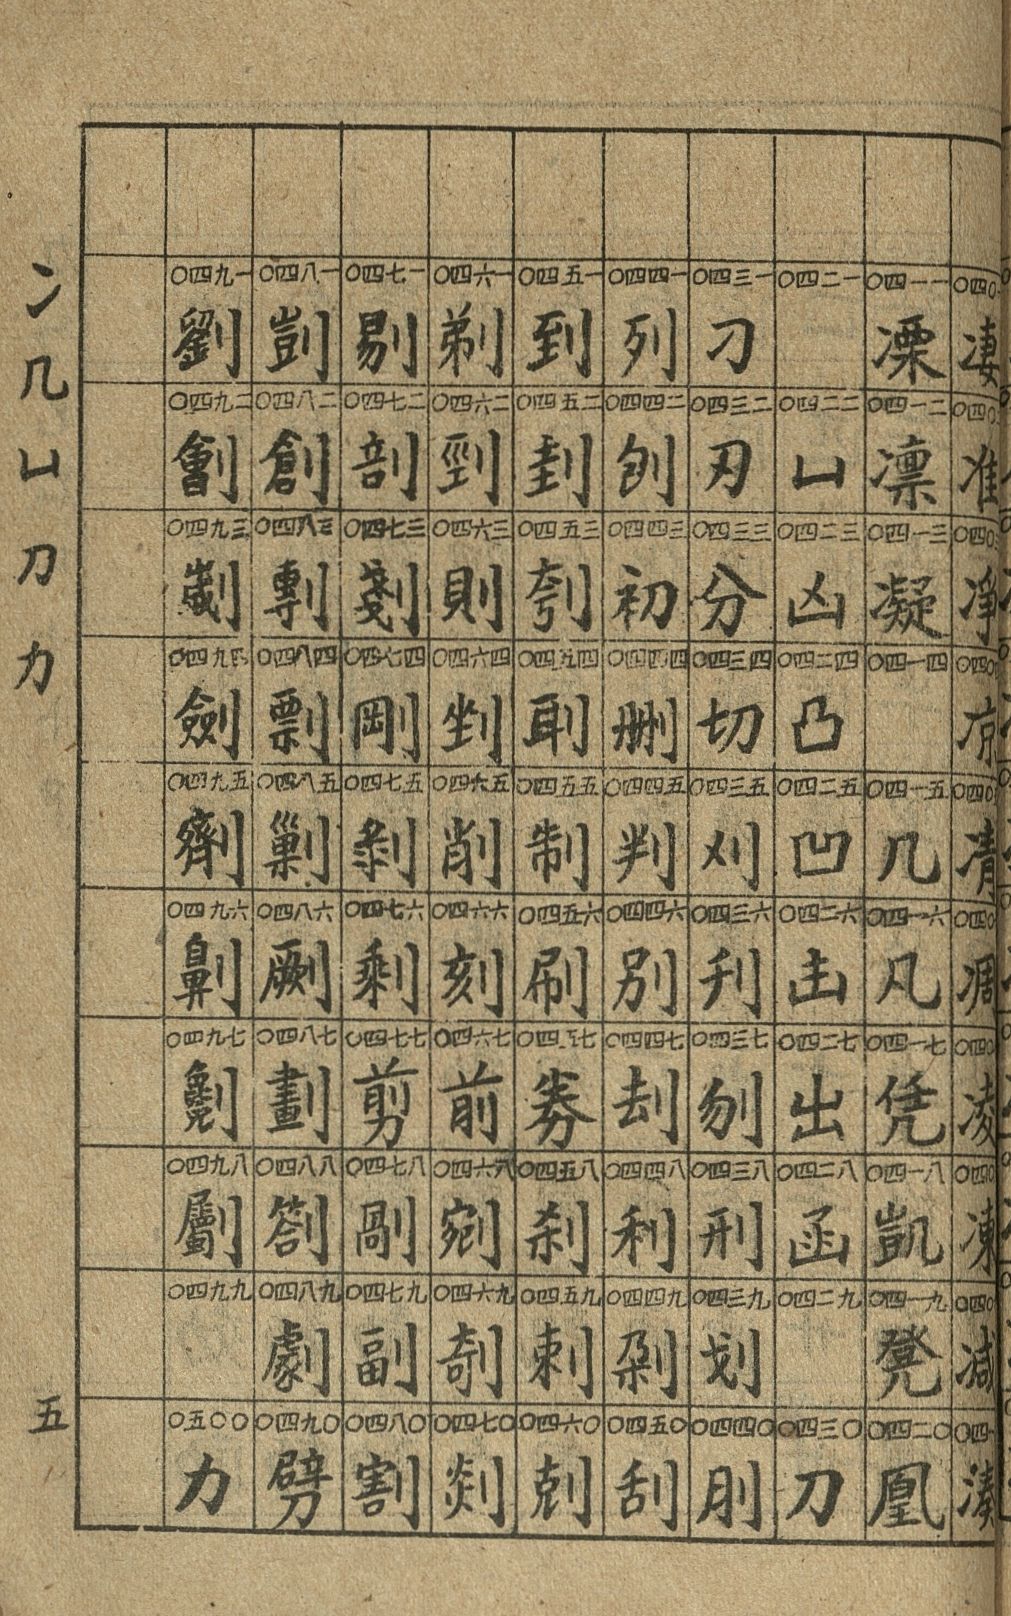 〇四〇
凄
〇四〇
准
〇四〇
凈
〇四〇
凉
〇四〇
凊
〇四〇
凋
〇四〇
凌
〇四〇
凍
〇四〇
减
〇四一
凑
〇四一一
凓
〇四一二
凛
〇四一三
凝
〇四一四
〇四一五
几
〇四一六
凡
〇四一七
凭
〇四一八
凱
〇四一九
凳
〇四二〇
凰
〇四二一
〇四二二
凵
〇四二三
凶
〇四二四
凸
〇四二五
凹
〇四二六
凷
〇四二七
出
〇四二八
函
〇四二九
〇四三〇
刀
〇四三一
刁
〇四三二
刃
〇四三三
分
〇四三四
切
〇四三五
刈
〇四三六
刋
〇四三七
刎
〇四三八
刑
〇四三九
划
〇四四〇
刖
〇四四一
列
〇四四二
刨
〇四四三
初
〇四四四
删
〇四四五
判
〇四四六
别
〇四四七
刦
〇四四八
利
〇四四九
剁
〇四五〇
刮
〇四五一
到
〇四五二
刲
〇四五三
刳
〇四五四
刵
〇四五五
制
〇四五六
刷
〇四五七
券
〇四五八
刹
〇四五九
刺
〇四六〇
剋
〇四六一
剃
〇四六二
剄
〇四六三
則
〇四六四
剉
〇四六五
削
〇四六六
刻
〇四六七
前
〇四六八
剜
〇四六九
剞
〇四七〇
剡
〇四七一
剔
〇四七二
剖
〇四七三
剗
〇四七四
剛
〇四七五
剝
〇四七六
剩
〇四七七
剪
〇四七八
剮
〇四七九
副
〇四八〇
割
〇四八一
剴
〇四八二
創
〇四八三
剸
〇四八四
剽
〇四八五
剿
〇四八六
劂
〇四八七
劃
〇四八八
劄
〇四八九
劇
〇四九〇
劈
〇四九一
劉
〇四九二
劊
〇四九三
劌
〇四九四
劍
〇四九五
劑
〇四九六
劓
〇四九七
劖
〇四九八
劚
〇四九九
〇五〇〇
力
冫几凵刀力
五